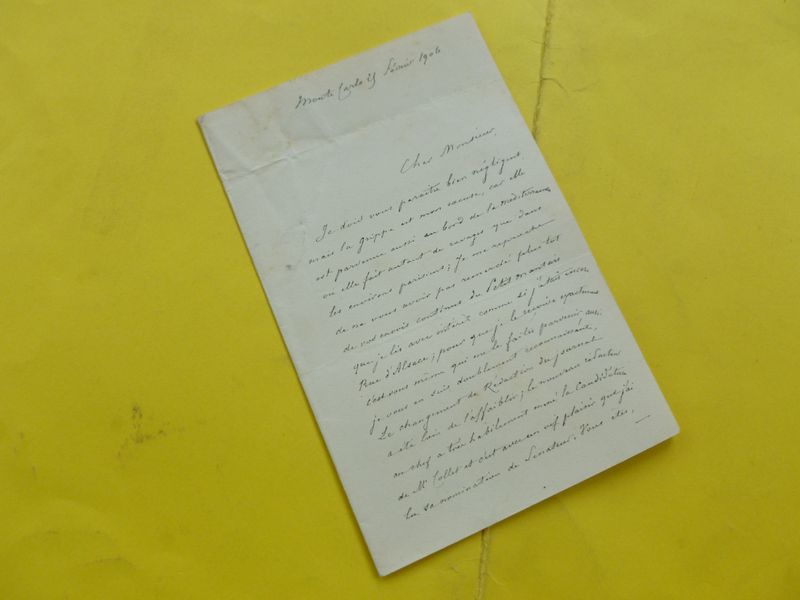 Monte Carlo 25 février 1906
Cher Monsieur,
Je dois vous paraître bien négligent,
mais la grippe est mon excuse, car elle
est parvenue aussi au bord de la méditerranée
ou elle fait autant de ravages que dans
les environs parisiens ; Je me reproche
de ne vous avoir pas remercié plus tôt
de vos envois continus du Petit Mantais
que je lis avec intérêt comme si j'étais encore
Rue d'Alsace ; pour que je le reçoive
c'est vous même qui me le faites parvenir aussi
je vous en suis doublement reconnaissant,
Le changement de Rédaction du journal
a été loin de l'affaiblir ; le nouveau rédacteur
en chef a très habilement mené la Candidature
de Mr Collet et c'est avec un vif plaisir que j'ai
lu sa nomination de Sénateur. Vous êtes,